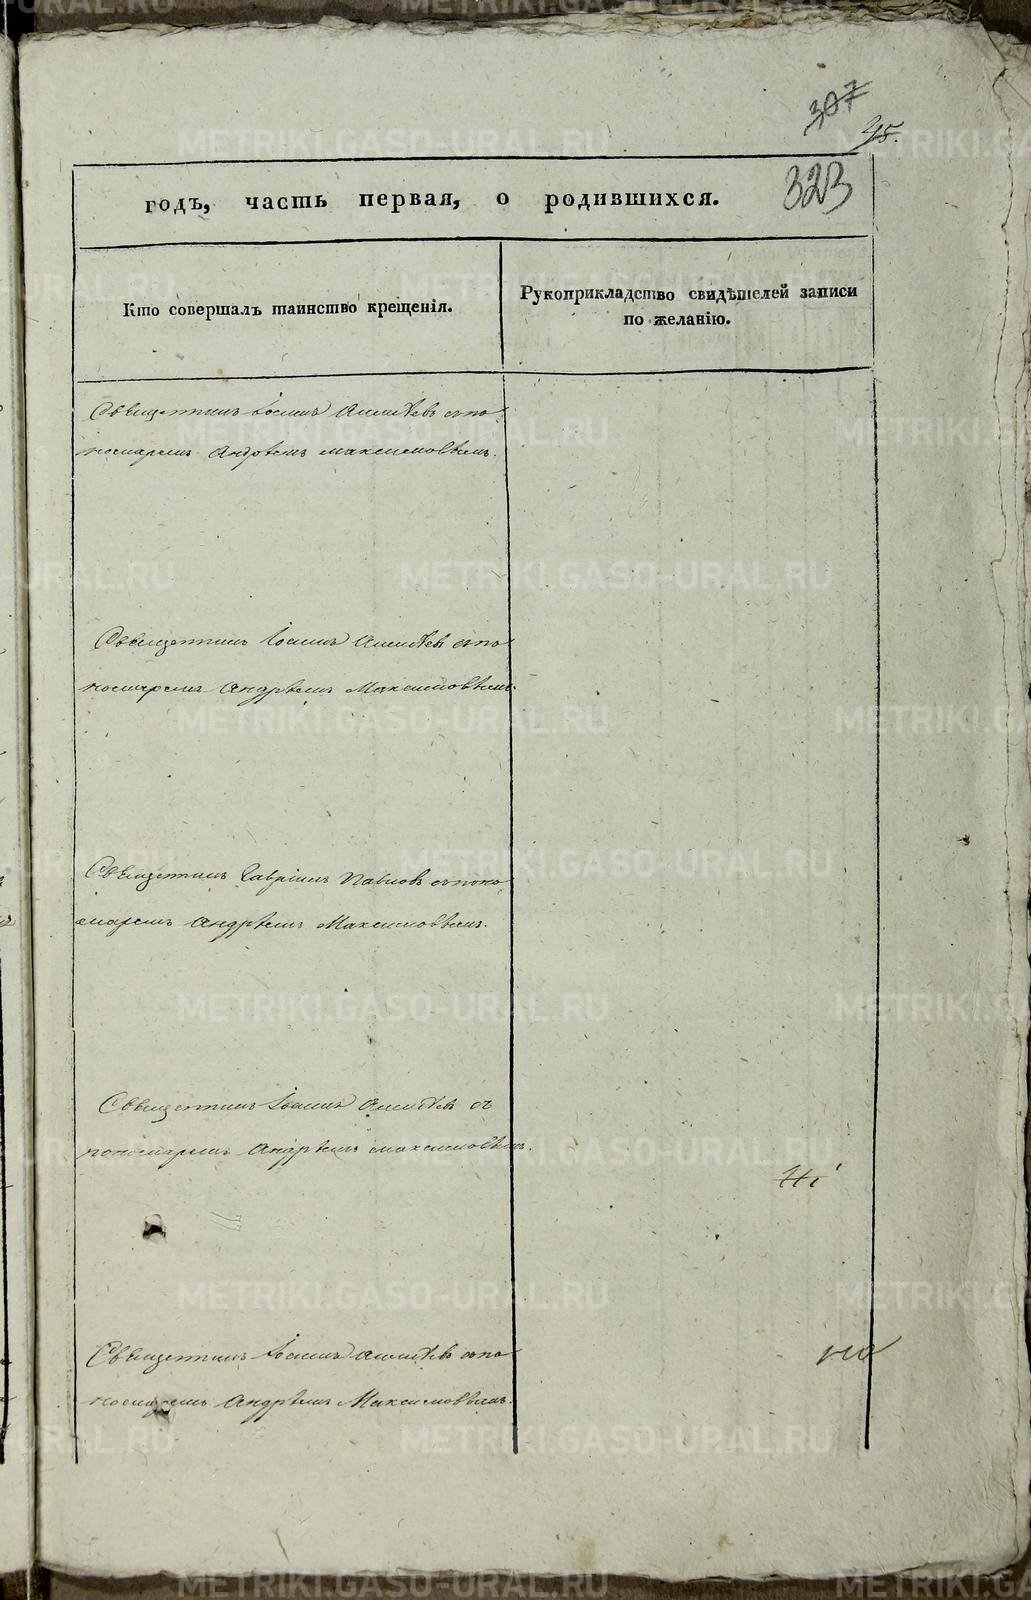 307
45.
323
годъ, часть первая, о родившихся.
Кто совершалъ таинство крещенія.
Рукоприкладство свидѣтелей записи
по желанію.
Священникъ Іоаннъ съ по
номаремъ Андреемъ Максимовымъ.
Священникъ Іоаннъ съ по
номаремъ Андреемъ Максимовымъ.
Священникъ Гавріилъ Павловъ съ поно
маремъ Андреемъ Максимовымъ.
Священникъ Іоаннъ съ
пономаремъ Андреемъ Максимовымъ.
Священникъ Іоаннъ съ по
номаремъ Андреемъ Максимовымъ.
METRIKI.GASO-URAL.RU